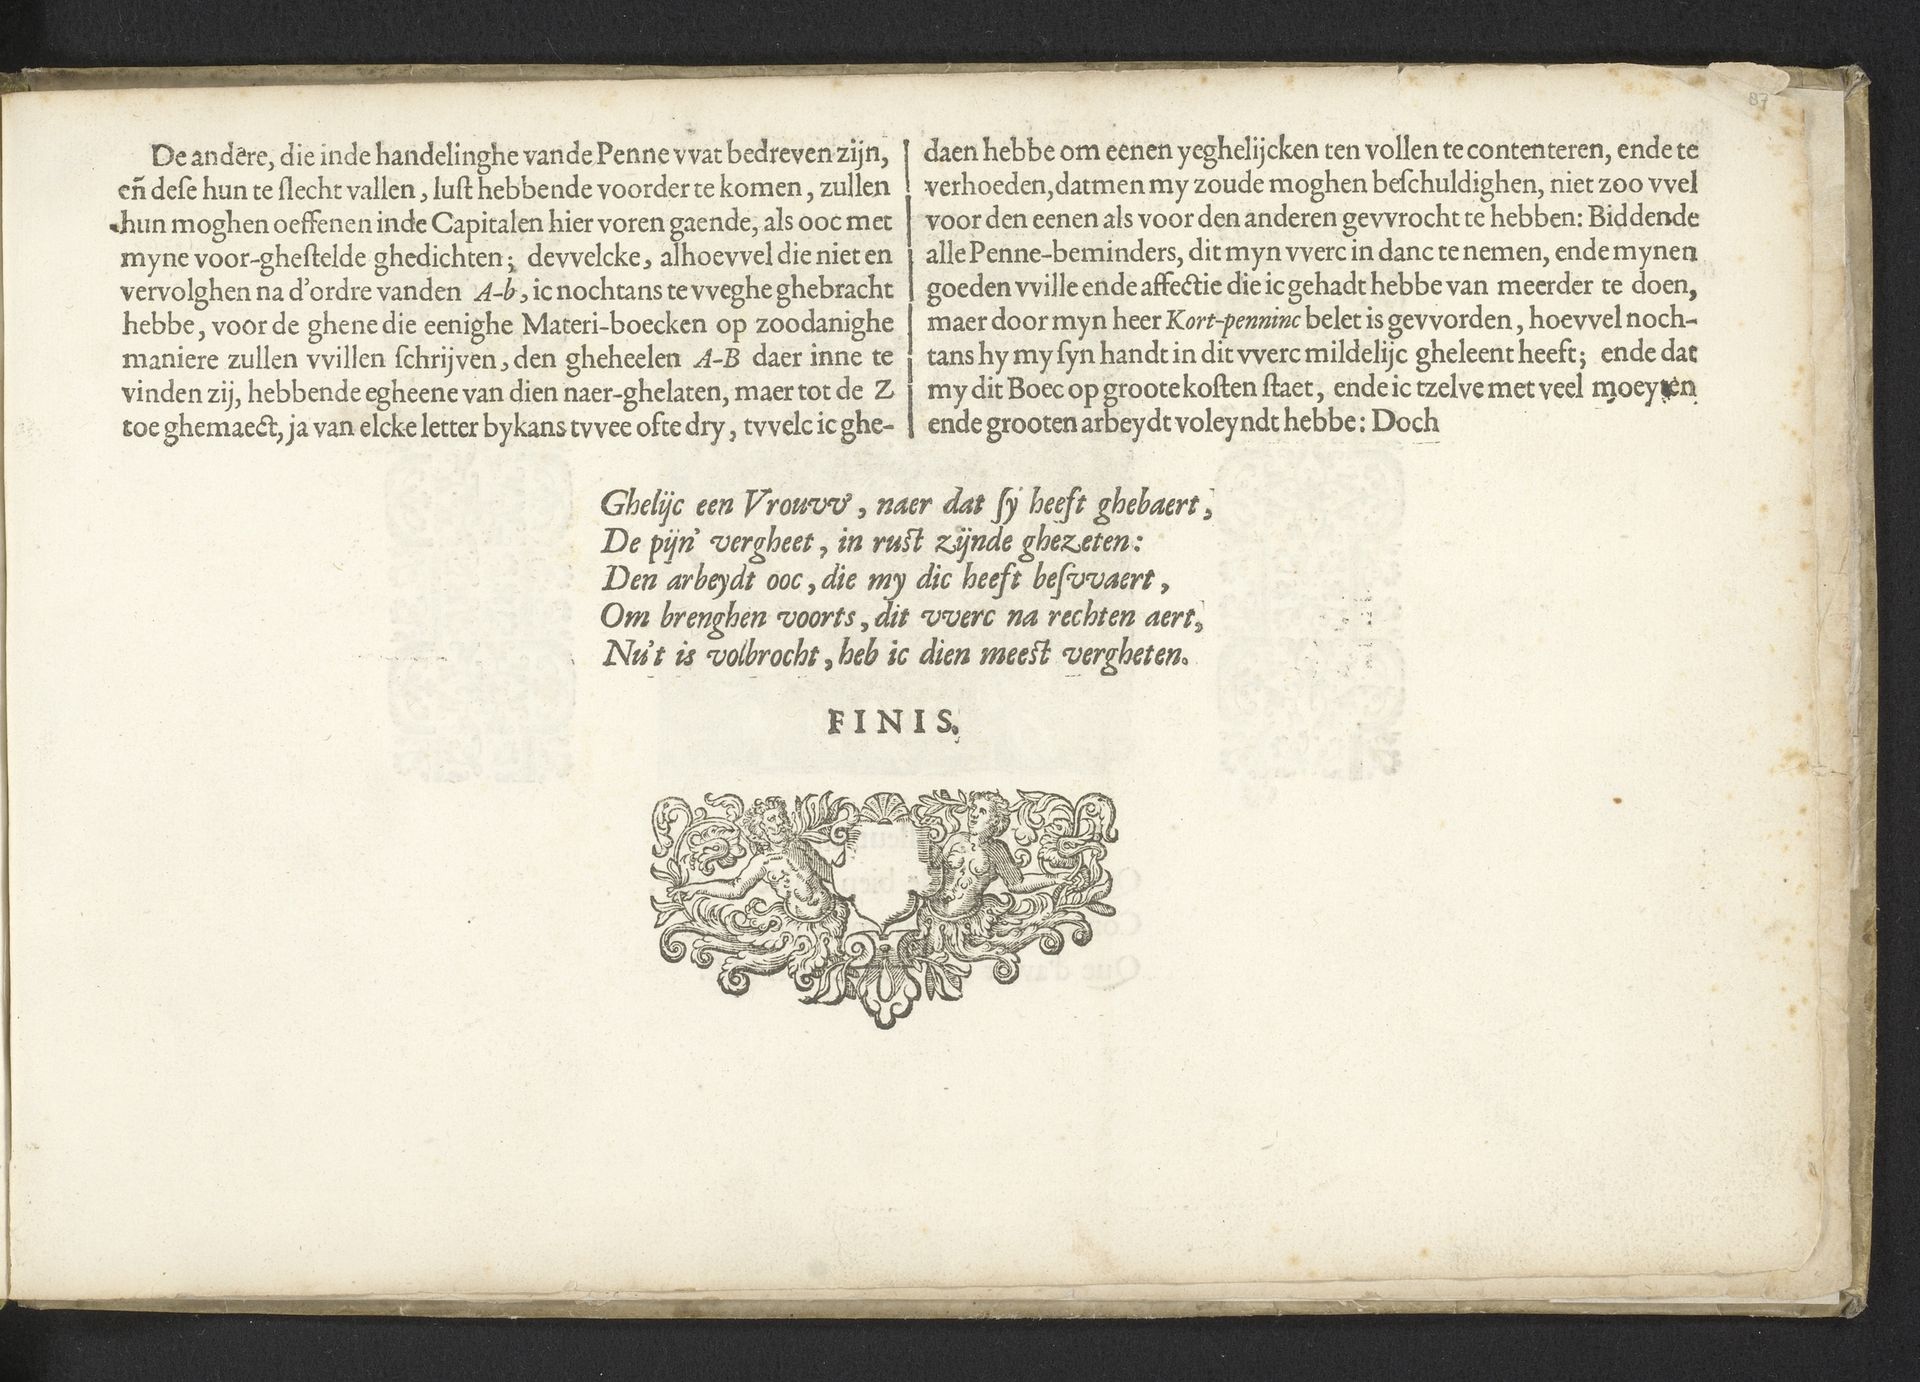 87
De andere, die inde handelinghe vande Penne vvat bedreven zijn,
en̄ deſe hun te ſlecht vallen, luſt hebbende voorder te komen, zullen
hun moghen oeffenen inde Capitalen hier voren gaende, als ooc met
myne voor-gheſtelde ghedichten; devvelcke, alhoevvel die niet en
vervolghen na d'ordre vanden A-b, ic nochtans te vveghe ghebracht
hebbe, voor de ghene die eenighe Materi-boecken op zoodanighe
maniere zullen vvillen ſchrijven, den gheheelen A-B daer inne te
vinden zij, hebbende egheene van dien naer-ghelaten, maer tot de Z
toe ghemaect, ja van elcke letter bykans tvvee ofte dry, tvvelc ic ghe-
daen hebbe om eenen yeghelijcken ten vollen te contenteren, ende te
verhoeden, datmen my zoude moghen beſchuldighen, niet zoo vvel
voor den eenen als voor den anderen gevvrocht te hebben: Biddende
alle Penne-beminders, dit myn vverc in danc te nemen, ende mynen
goeden vville ende affectie die ic gehadt hebbe van meerder te doen,
maer door myn heer Kort-penninc belet is gevvorden, hoevvel noch-
tans hy my ſyn handt in dit vverc mildelijc gheleent heeft; ende dat
my dit Boec op groote koſten ſtaet, ende ic tzelve met veel moeyten
ende grooten arbeydt voleyndt hebbe: Doch
Ghelijc een Vrouvv', naer dat ſy heeft ghebaert,
De pijn' vergheet, in ruſt zijnde ghezeten:
Den arbeydt ooc, die my dic heeft beſvvaert,
Om brenghen voorts, dit vverc na rechten aert,
Nu't is volbrocht, heb ic dien meeſt vergheten.
FINIS.